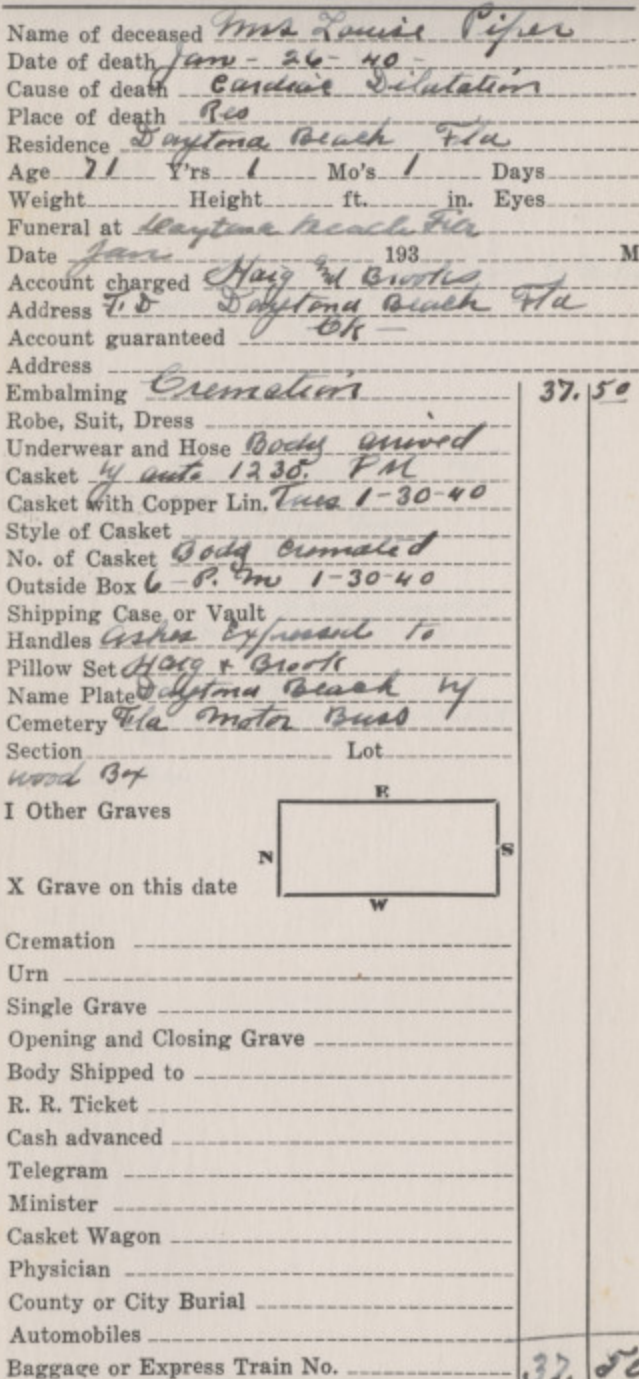 Name of deceased Mrs Louise Piper
Date of death Jan - 26 - 40 -
Cause of death Cardiac Dilatation
Place of death Res
Residence Daytona Beach Fla
Age 71 Y'rs 1 Mo's 1 Days
Weight Height ft. in. Eyes
Funeral at Daytona Beach Fla
Date Jan 193 M
Account charged Haig and Brooks
Address F.D Daytona Beach Fla
Account guaranteed Ok -
Address
Embalming Cremation 37. 50
Robe, Suit, Dress
Underwear and Hose Body arrived
Casket by auto 1235. PM
Casket with Copper Lin. Tues 1-30-40
Style of Casket
No. of Casket Body Cremated
Outside Box 6 - P. M 1-30-40
Shipping Case or Vault
Handles Ashes Expressed to
Pillow Set Haig & Brook
Name Plate Daytona Beach by
Cemetery Fla Motor Buss
Section Lot
wood Box
E
I Other Graves
N S
X Grave on this date
W
Cremation
Urn
Single Grave
Opening and Closing Grave
Body Shipped to
R. R. Ticket
Cash advanced
Telegram
Minister
Casket Wagon
Physician
County or City Burial
Automobiles
Baggage or Express Train No. 37. 50